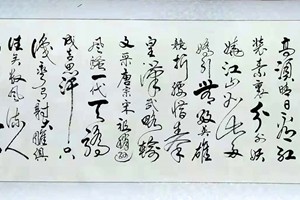 高须晴日看红
装素裹分外妖
娆江山如此多
娇引無数英雄
竞折腰惜秦
皇漢武略输
文采唐宗宋祖稍逊
風骚一代天骄
成吉思汗只
识弯弓射大雕俱
往矣数風流人